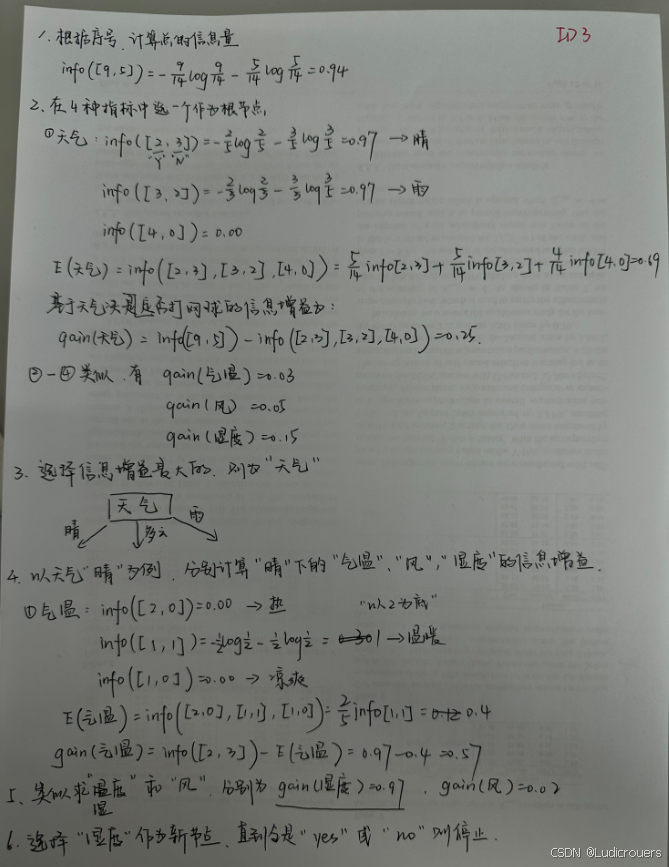 ID3
1. 根据序号，计算总的信息量
info([9,5])=-9/14log9/14-5/14log5/14=0.94
2. 在4种指标中选一个作为根节点，
①天气：info([2,3])=-2/5log2/5-3/5log3/5=0.97 →晴
"Y" "N"
info([3,2])=-2/3log2/3-3/3log3/5=0.97 →雨
info([4,0])=0.00
E(天气)=info([2,3],[3,2],[4,0])=5/14info[2,3]+5/14info[3,2]+4/14info[4,0]=0.69
基于天气决定是否打网球的信息增益为：
gain(天气)=info([9,5])-info([2,3],[3,2],[4,0])=0.25.
②-④类似，有 gain(气温)=0.03
gain(风)=0.05
gain(湿度)=0.15
3. 选择信息增益最大的，则为"天气"
天气
晴 多云 雨
4. 以天气"晴"为例，分别计算"晴"下的"气温"、"风"，"湿度"的信息增益.
①气温：info([2,0])=0.00 →热 "以2为底"
info([1,1])=-1/2log1/2-1/2log1/2=1→温暖
info([1,0])=0.00→凉爽
E(气温)=info([2,0],[1,1],[1,0])=2/5info[1,1]=0.4
gain(气温)=info([2,3])-E(气温)=0.97-0.4=0.57
5. 类似求"湿度"和"风"，分别为 gain(湿度)=0.97，gain(风)=0.02
湿
6. 选择"湿度"作为新节点，直到全是"yes"或"no"则停止.
CSDN @Ludicrouers